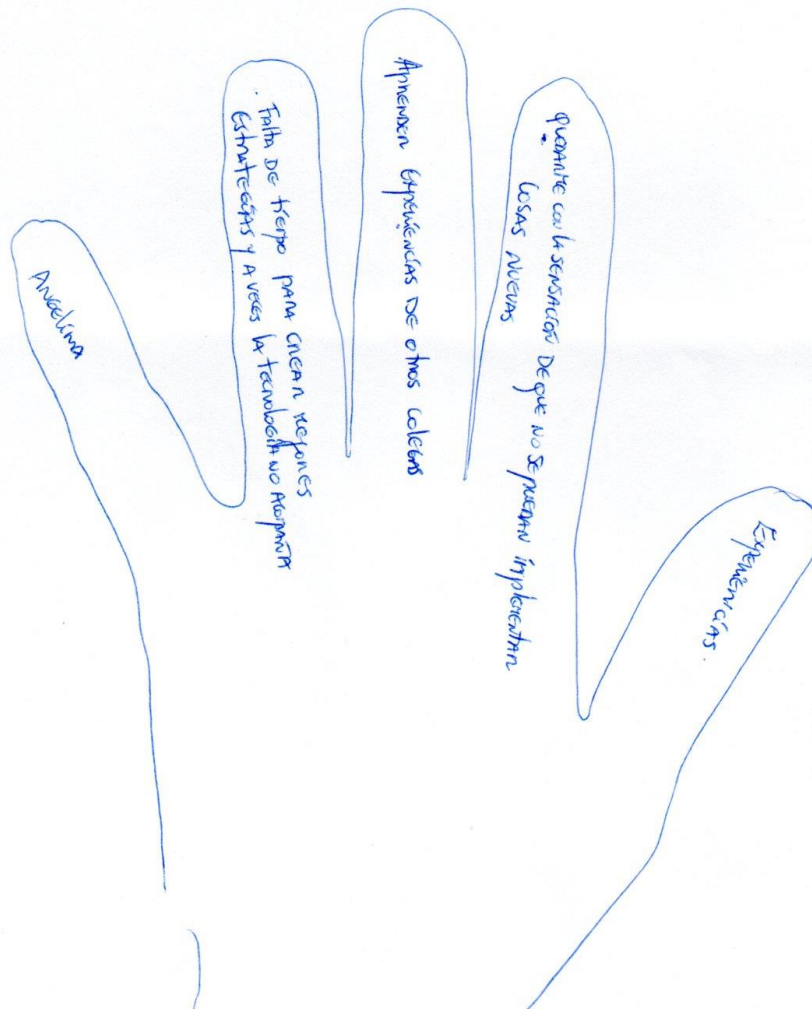 Angelina
. Falta de tiempo para crear mejores
estrategias y a veces la tecnología no acompaña
Aprender experiencias de otros colegas
. quedarme con la sensación de que no se puedan implementar
cosas nuevas
Experiencias.